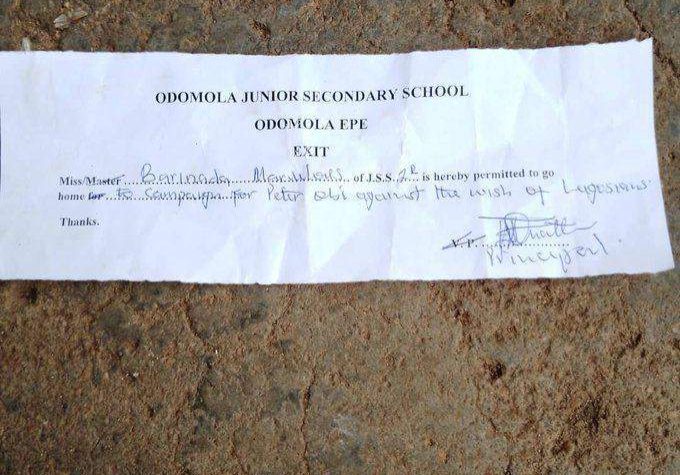 ODOMOLA JUNIOR SECONDARY SCHOOL
ODOMOLA EPE
EXIT
Miss/Master Barinada of J.S.S. 2 is hereby permitted to go
home for to campaign for Peter Obi against the wish of Lagosians
Thanks.
V.P.
Principal.